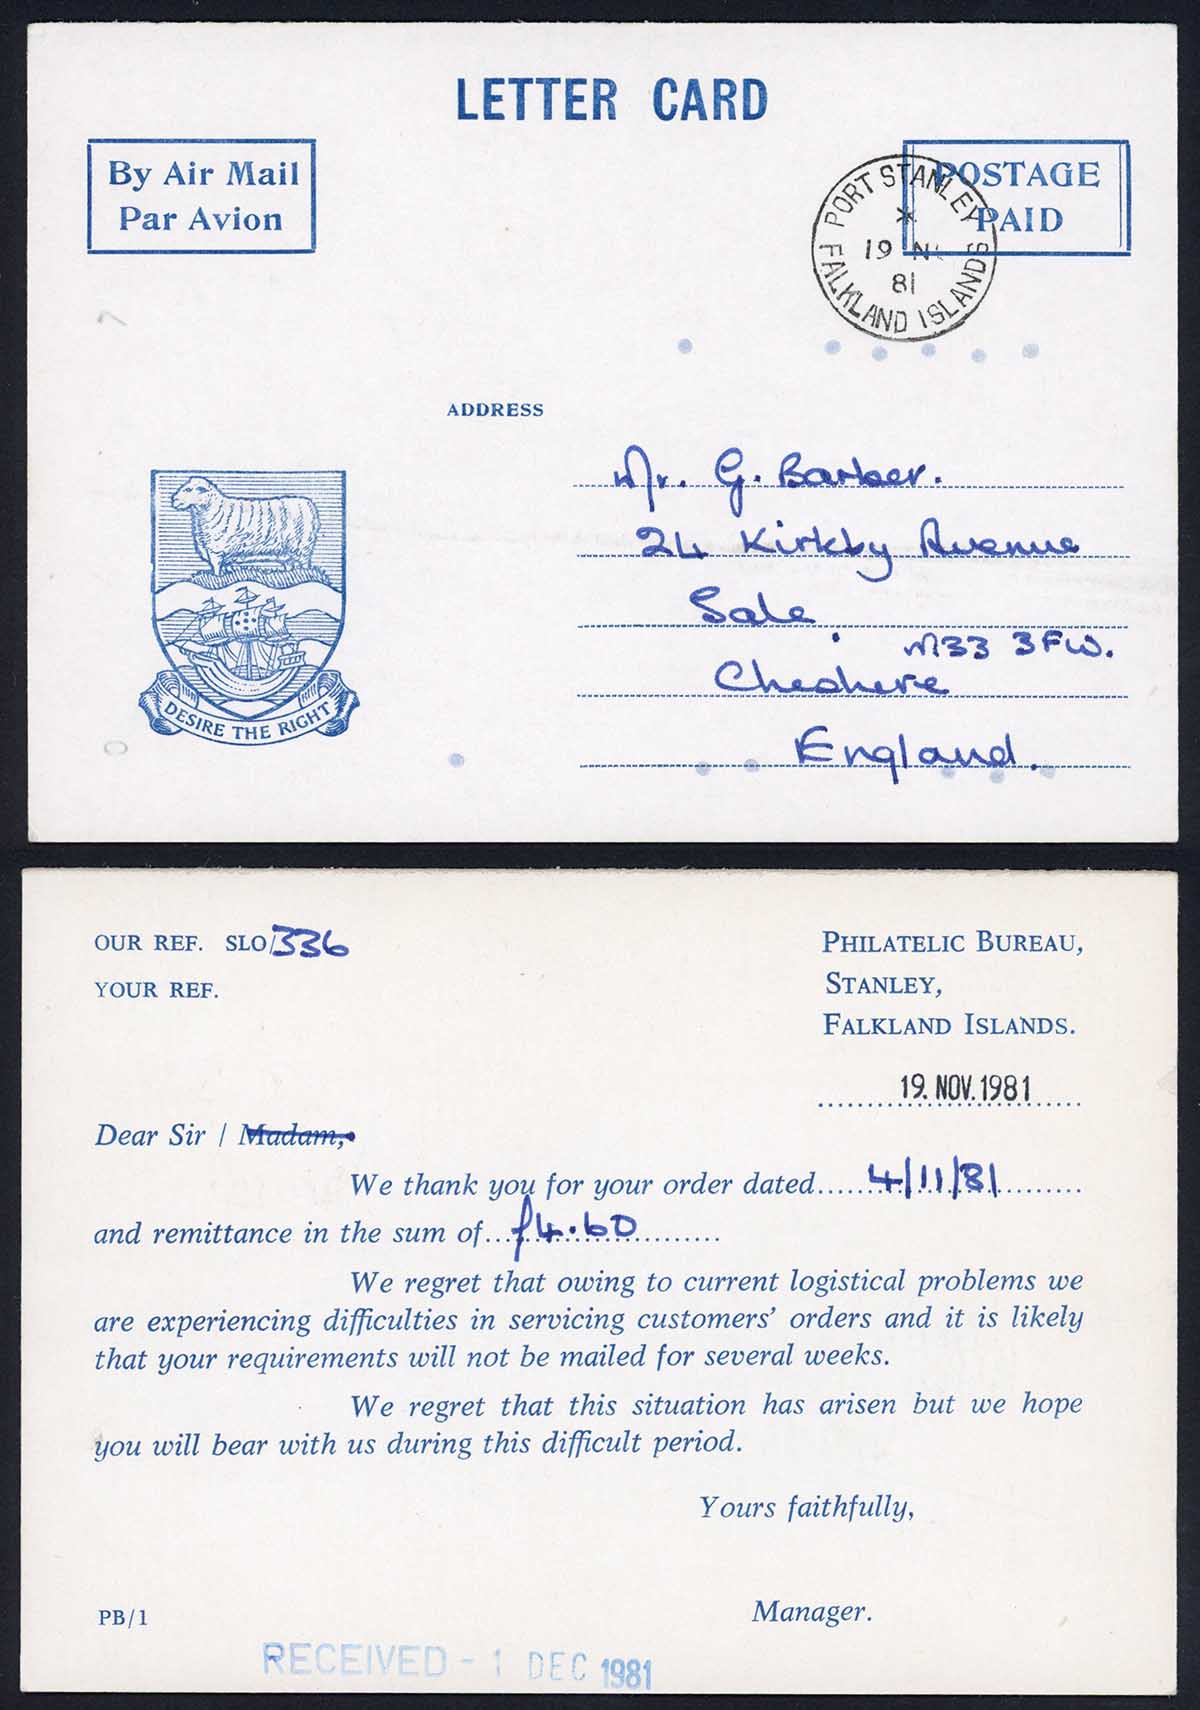 LETTER CARD
By Air Mail
Par Avion
POSTAGE
PAID
PORT STANLEY
19 N
81
FALKLAND ISLANDS
ADDRESS
Mr. G. Barber.
24 Kirkby Avenue
Sale.
M33 3FW.
Cheshire
England.
DESIRE THE RIGHT
OUR REF. SLO/336
YOUR REF.
PHILATELIC BUREAU,
STANLEY,
FALKLAND ISLANDS.
19. NOV. 1981
Dear Sir / Madam,
We thank you for your order dated......4/11/81..........
and remittance in the sum of...£4.60..........
We regret that owing to current logistical problems we
are experiencing difficulties in servicing customers' orders and it is likely
that your requirements will not be mailed for several weeks.
We regret that this situation has arisen but we hope
you will bear with us during this difficult period.
Yours faithfully,
Manager.
PB/1
RECEIVED - 1 DEC 1981